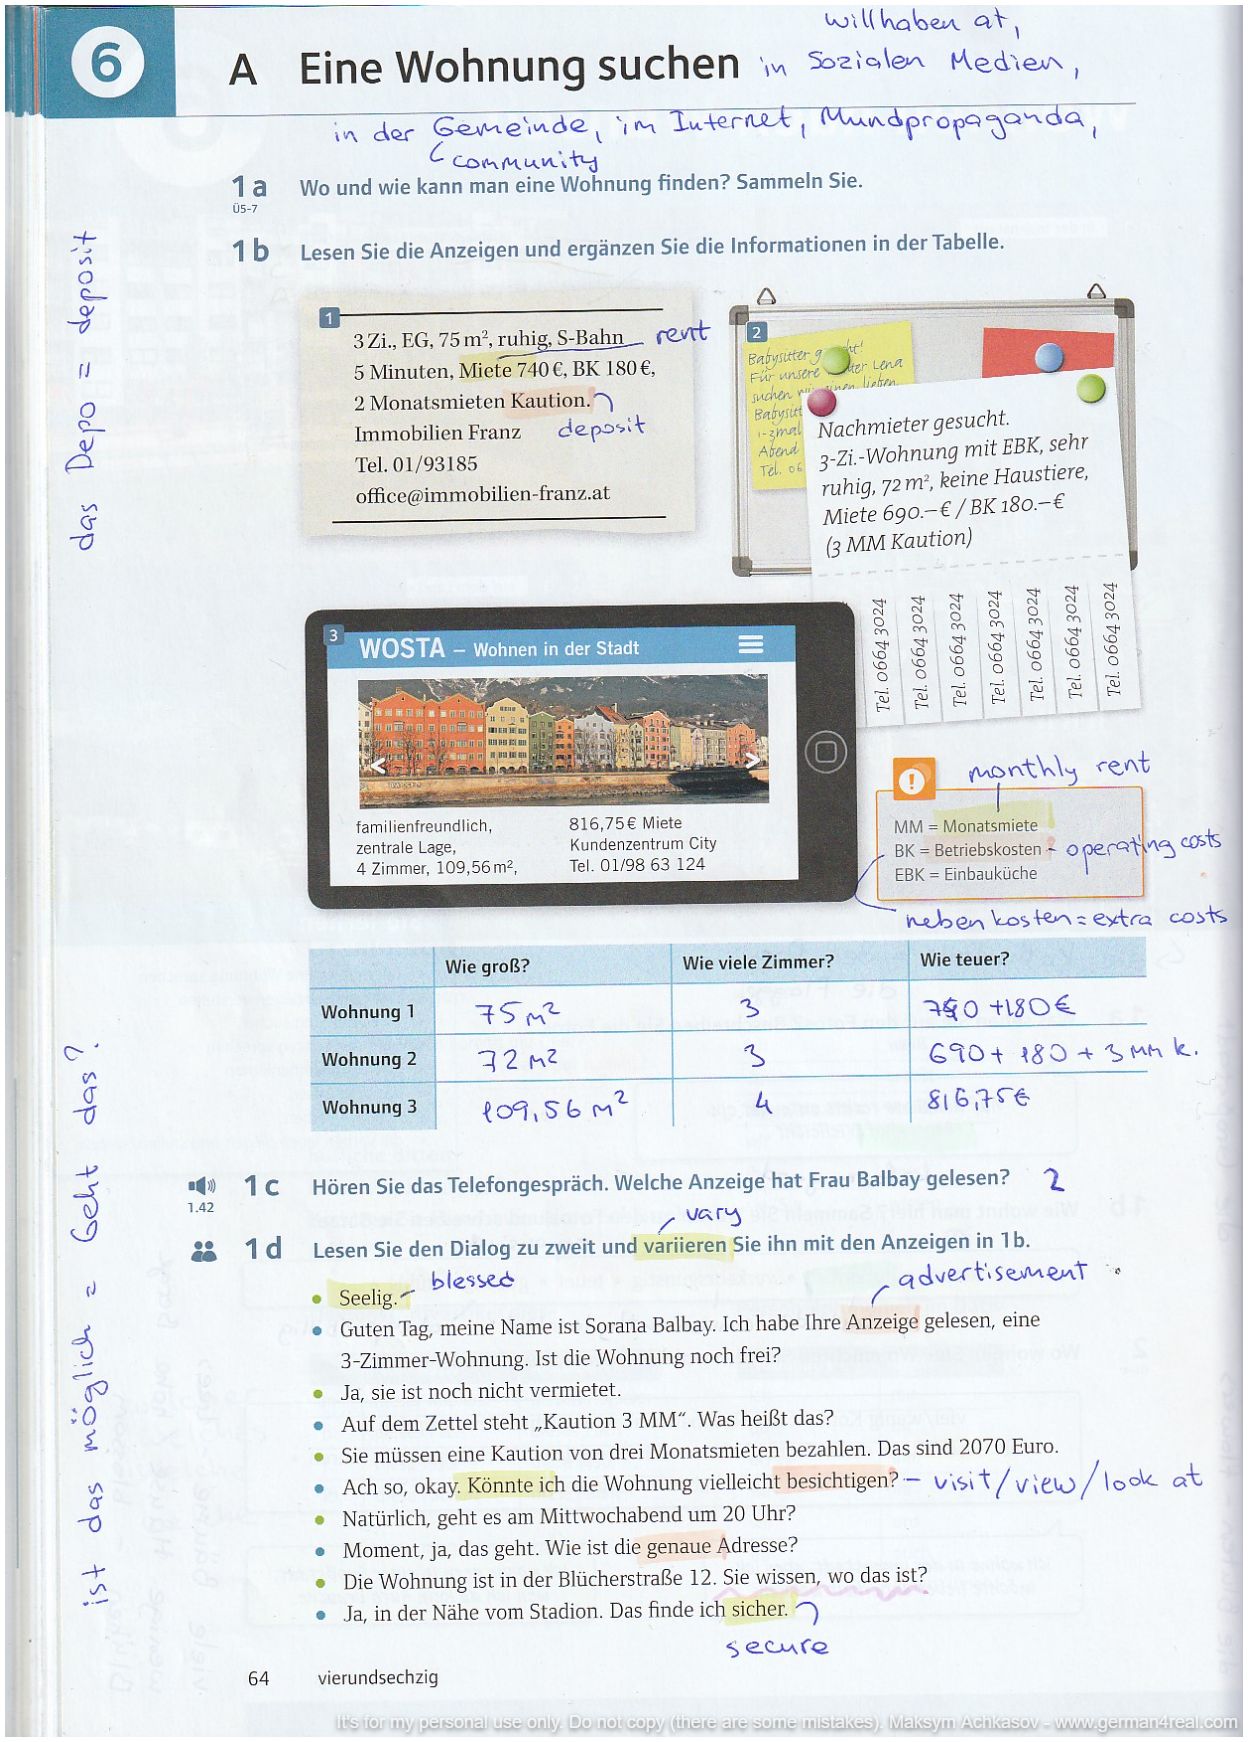 willhaben at,
6 A Eine Wohnung suchen in Sozialen Medien,
in der Gemeinde, im Internet, Mundpropaganda,
community
1a Wo und wie kann man eine Wohnung finden? Sammeln Sie.
Ü5-7
1b Lesen Sie die Anzeigen und ergänzen Sie die Informationen in der Tabelle.
das Depo = deposit
1
3 Zi., EG, 75 m², ruhig, S-Bahn rent
5 Minuten, Miete 740 €, BK 180 €,
2 Monatsmieten Kaution.
Immobilien Franz deposit
Tel. 01/93185
office@immobilien-franz.at
2
Babysitter
Für unsere Lena
suchen einen lieben
Abend
Tel. 06
Nachmieter gesucht.
3-Zi.-Wohnung mit EBK, sehr
ruhig, 72 m², keine Haustiere,
Miete 690.–€ / BK 180.–€
(3 MM Kaution)
Tel. 0664 3024
Tel. 0664 3024
Tel. 0664 3024
Tel. 0664 3024
Tel. 0664 3024
Tel. 0664 3024
Tel. 0664 3024
3
WOSTA – Wohnen in der Stadt
familienfreundlich,
zentrale Lage,
4 Zimmer, 109,56 m²,
816,75 € Miete
Kundenzentrum City
Tel. 01/98 63 124
monthly rent
!
MM = Monatsmiete
BK = Betriebskosten - operating costs
EBK = Einbauküche
nebenkosten = extra costs
Wie groß? Wie viele Zimmer? Wie teuer?
Wohnung 1 75 m² 3 740 +180 €
Wohnung 2 72 m² 3 690 + 180 + 3 MM K.
Wohnung 3 109,56 m² 4 816,75 €
ist das möglich = Geht das?
1c Hören Sie das Telefongespräch. Welche Anzeige hat Frau Balbay gelesen? 2
1.42
vary
1d Lesen Sie den Dialog zu zweit und variieren Sie ihn mit den Anzeigen in 1b.
• Seelig. - blessed advertisement
• Guten Tag, meine Name ist Sorana Balbay. Ich habe Ihre Anzeige gelesen, eine
3-Zimmer-Wohnung. Ist die Wohnung noch frei?
• Ja, sie ist noch nicht vermietet.
• Auf dem Zettel steht „Kaution 3 MM“. Was heißt das?
• Sie müssen eine Kaution von drei Monatsmieten bezahlen. Das sind 2070 Euro.
• Ach so, okay. Könnte ich die Wohnung vielleicht besichtigen? - visit/view/look at
• Natürlich, geht es am Mittwochabend um 20 Uhr?
• Moment, ja, das geht. Wie ist die genaue Adresse?
• Die Wohnung ist in der Blücherstraße 12. Sie wissen, wo das ist?
• Ja, in der Nähe vom Stadion. Das finde ich sicher.
secure
64 vierundsechzig
It's for my personal use only. Do not copy (there are some mistakes). Maksym Achkasov - www.german4real.com